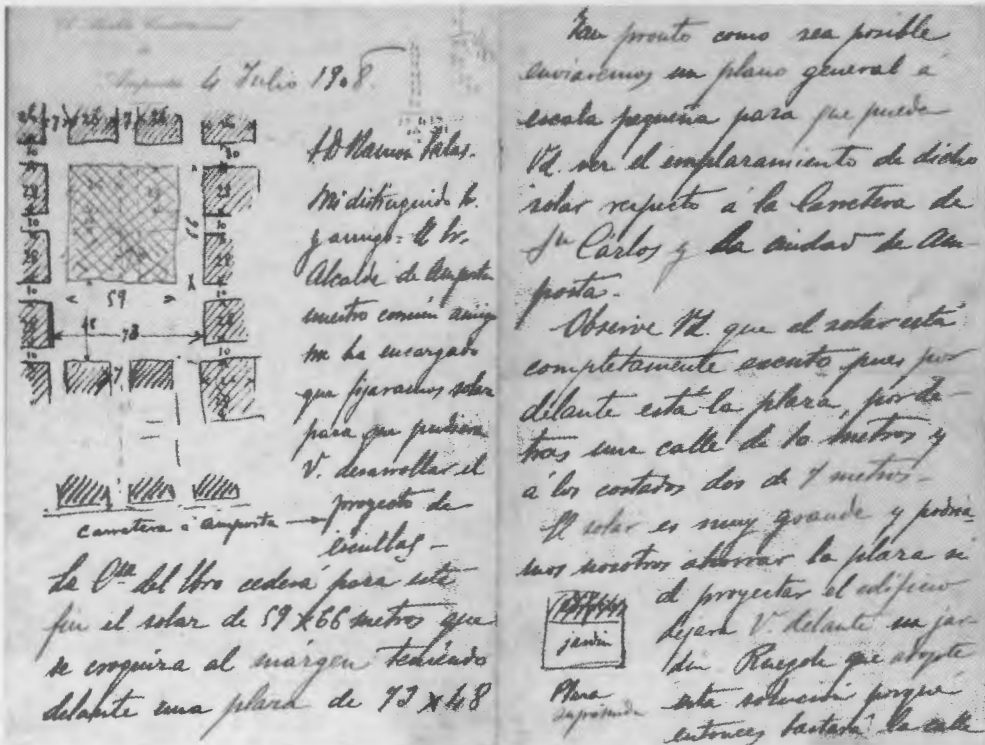 El Alcalde Constitucional
de
Amposta 4 Julio 1908.
26 7 26 7 26
10
20
59
73
48
7
carretera a amposta
S. D. Ramón Salas.
Mi distinguido S.
y amigo: El Sr.
Alcalde de Amposta
nuestro común amigo
me ha encargado
que fijaramos solar
para que pudiera
V. desarrollar el
proyecto de
escuelas -
La Cia del Ebro cederá para este
fin el solar de 59 x 66 metros que
se croquiza al márgen teniendo
delante una plaza de 73 x 48
Tan pronto como sea posible
enviaremos un plano general á
escala pequeña para que pueda
Vd. ver el emplazamiento de dicho
solar respecto á la Carretera de
Sn Cárlos y la ciudad de Am-
posta.
Observe Vd. que el solar está
completamente exento pues por
delante está la plaza, por de-
tras una calle de 10 metros y
á los costados dos de 7 metros -
El solar es muy grande y podria-
mos nosotros ahorrar la plaza si
al proyectar el edificio
dejara V. delante un jar-
din Ruegole que adopte
esta solución porque
entonces bastará la calle
jardin
Plaza
suprimida